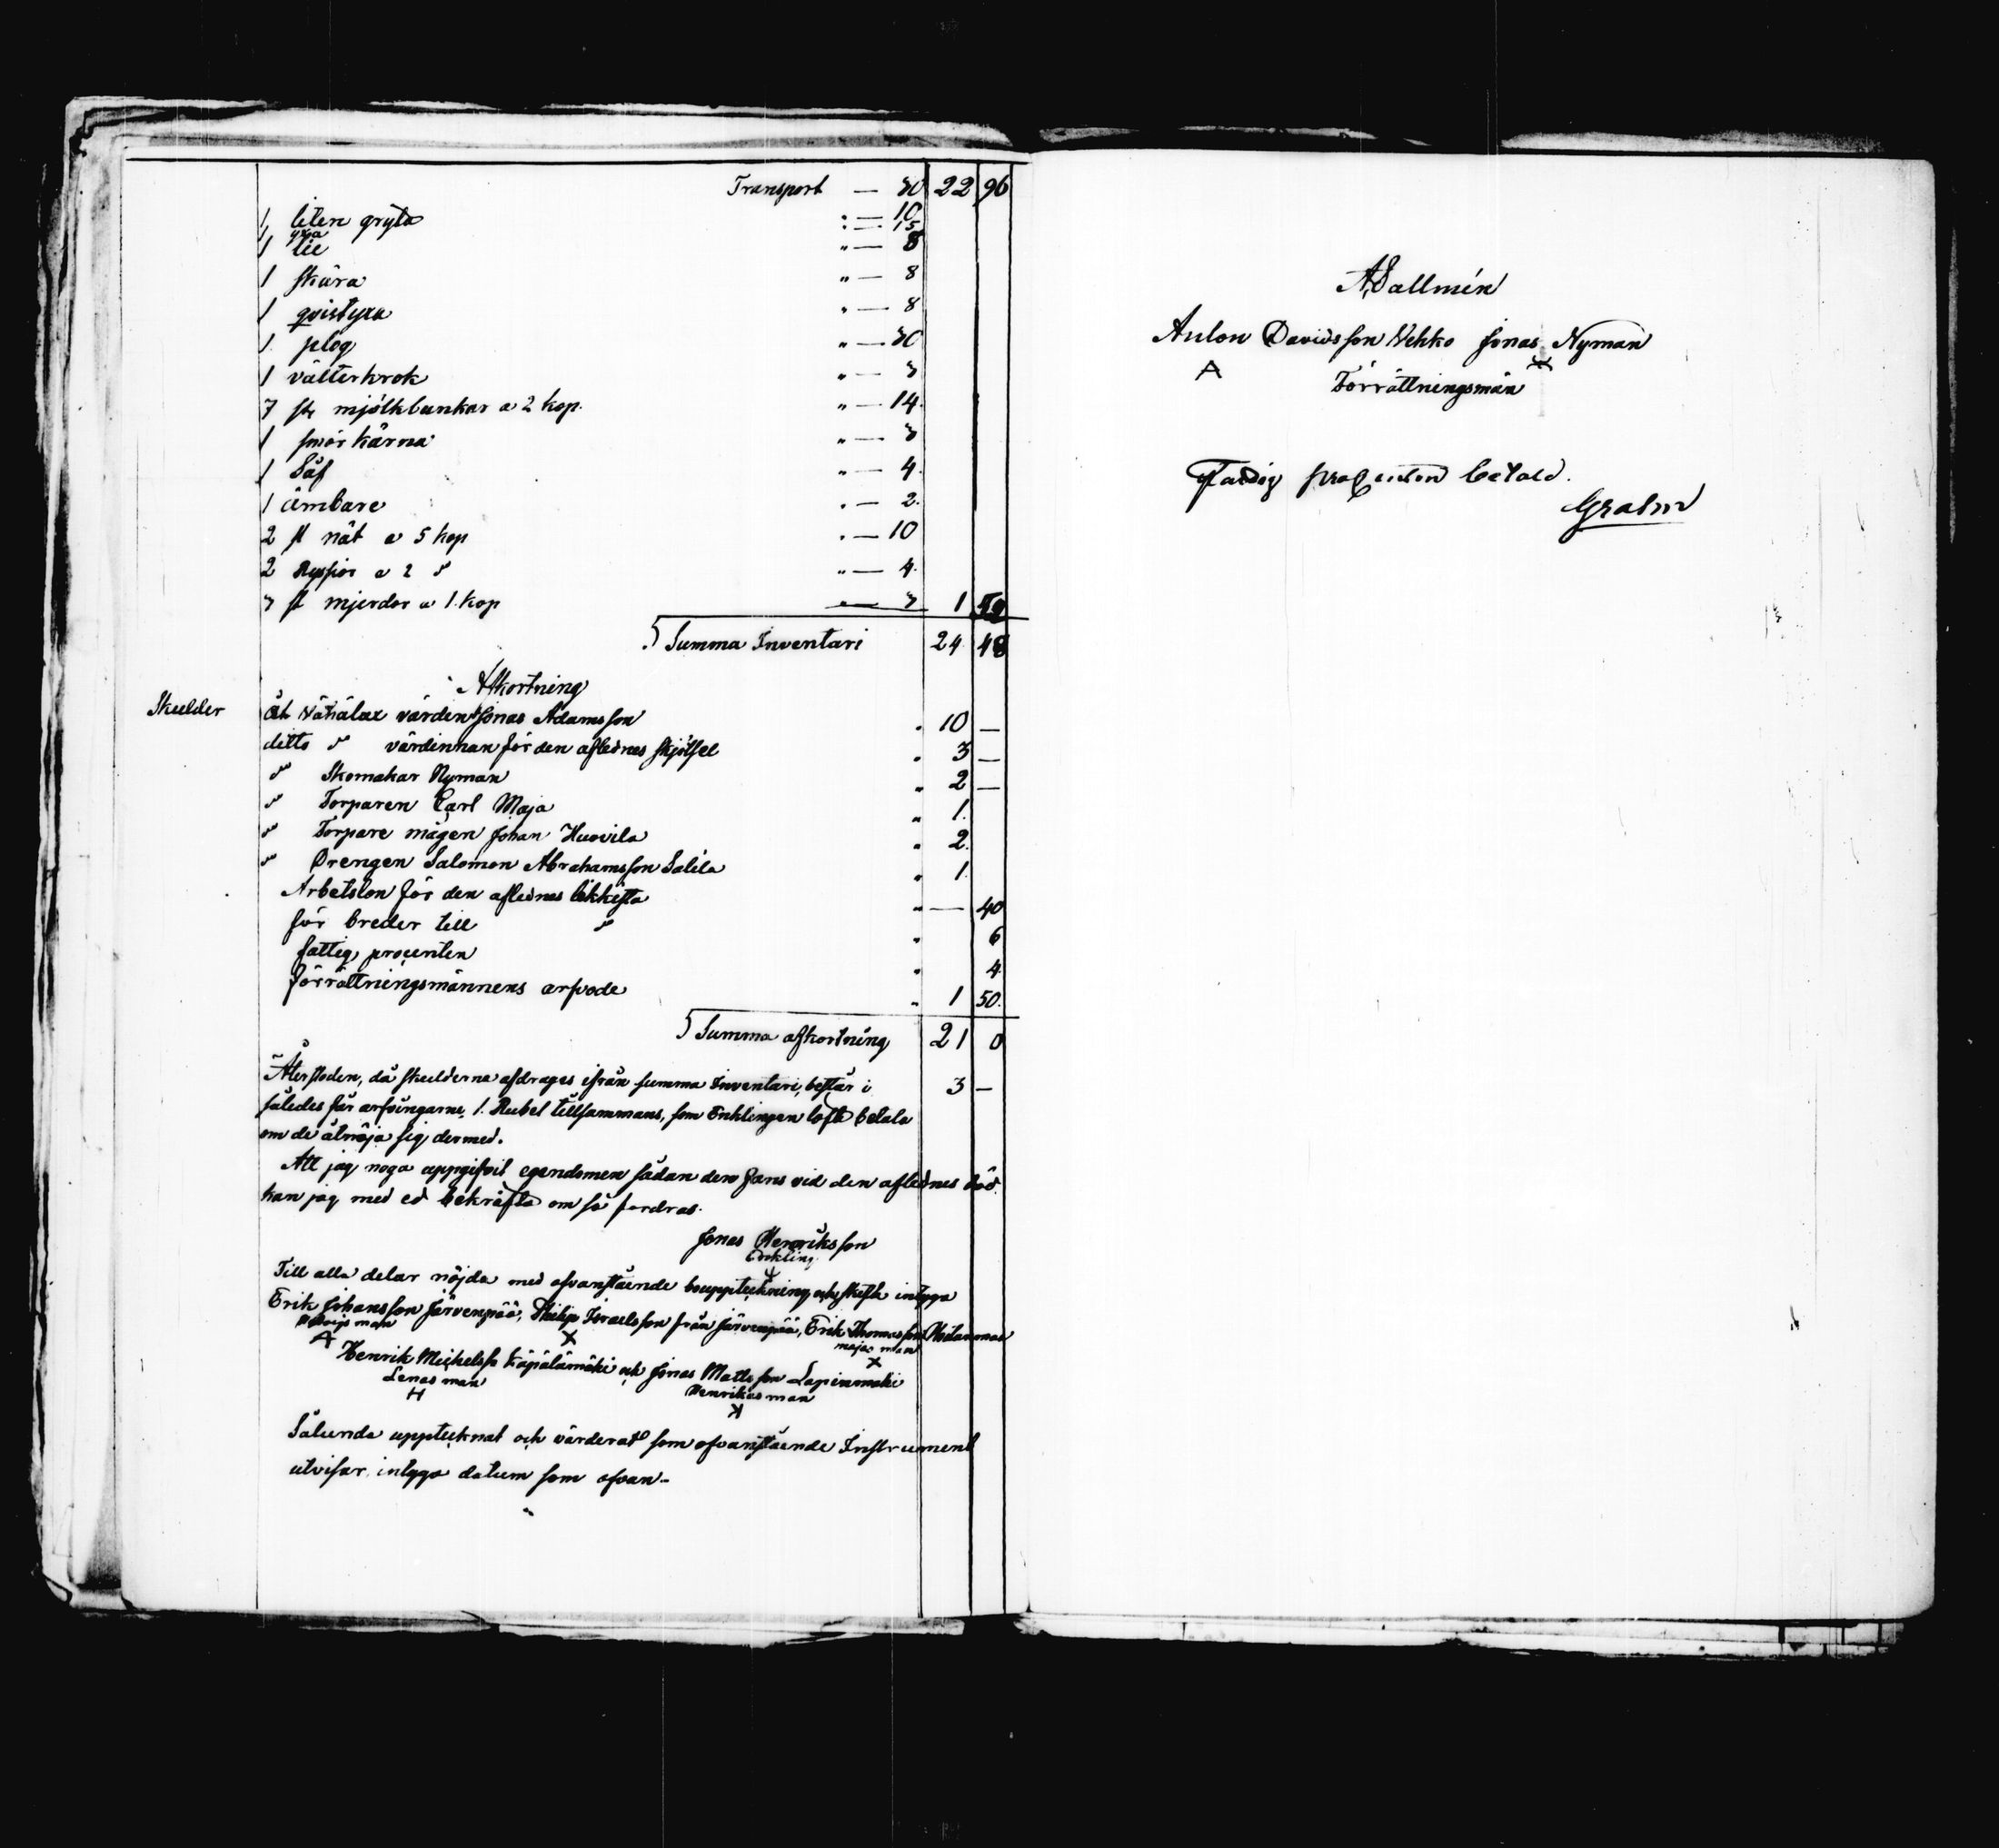 Transport — 30 22 96
1 liten gryta : — 10
1 yxa : — 15
1 lie " — 8
1 skära " — 8
1 qvistyxa " — 8
1 plog " — 30
1 välterkrok " — 3
7 st mjölkbunkar a 2 kop. " — 14.
1 smör kärna " — 3
1 Såf " — 4.
1 ämbare " — 2.
2 st nät a 5 kop " — 10
2 Ryssior a 2 d " — 4.
3 st mjerdor a 1. kop — 3 1 52
Summa Inventari 24 48
Afkortning
Skulder åt värden Jonas Adamsson " 10 —
ditto d värdinnan för den aflednes skjötsel " 3 —
d Skomakar Nyman " 2 —
d Torparen Carl Maja " 1.
d Torpare mågen Johan Huovila " 2.
d Drengen Salomon Abrahamsson Salila " 1.
Arbetslön för den aflednes likkista " — 40
för breder till d " 6
fattig procenten " 4.
förrättningsmännens arfvode " 1 50.
Summa afkortning 21 0
Återstoden, då skulderna afdrages ifrån summa Inventari, består i 3 —
således får arfvingarne 1. Rubel tillsammans, som Enklingen loft betala
om de åtnöja sig dermed.
Att jag noga uppgifvit egendomen sådan den fans vid den aflednes död.
kan jag med ed bekräfta om så fordras.
Jonas Henriksson
Enkling
Till alla delar nöjda med ofvanstående bouppteckning och skifte intyga
Erik Johansson Järvenpää, Philip Israelsson från Järvenpää, Erik Thomasson
man majas man
A X X
Henrik Michelss Käpälämäki och Jonas Mattsson Lapinmäki
Lenas man Henrikas man
H X
Sålunda uppteknat och värderat som ofvanstående Instrument
utvisar, intyga datum som ofvan.
A. Sallmén
Anton Davidsson Vehko Jonas Nyman
A X
Förrättningsmän
Fattig procenten betald.
Grahn